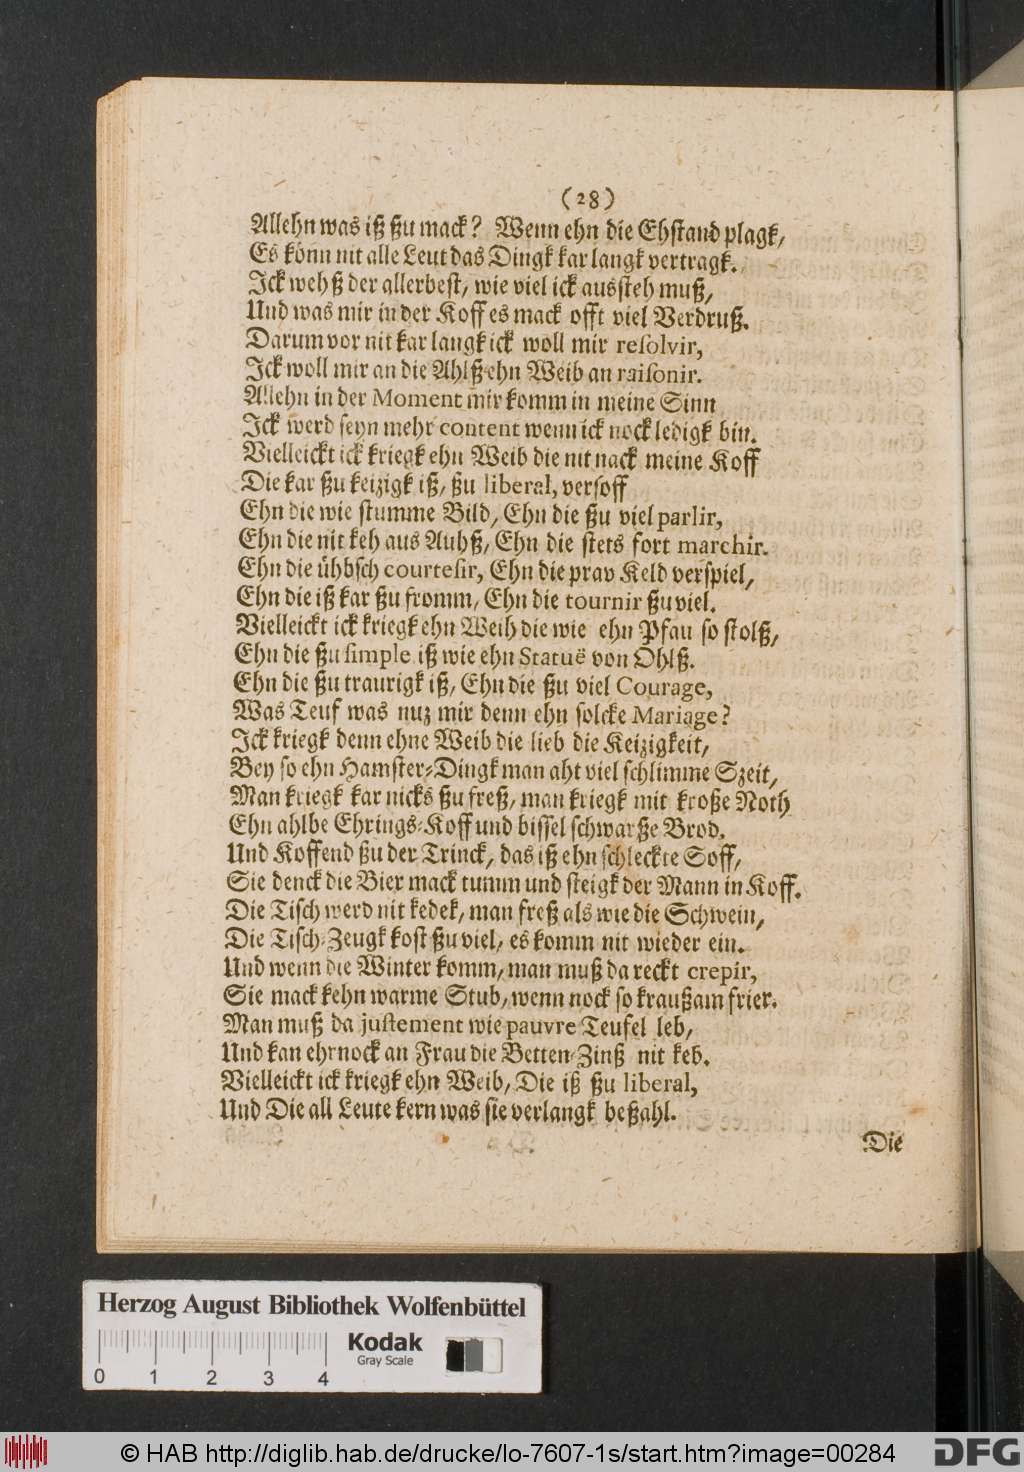 (28)
Allehn was iß ßu mack? Wenn ehn die Ehstand plagk,
Es könn nit alle Leut das Dingk kar langk vertragk.
Ick wehß der allerbest, wie viel ick aussteh muß,
Und was mir in der Koff es mack offt viel Verdruß.
Darum vor nit kar langk ick woll mir resolvir,
Ick woll mir an die Ahlß ehn Weib an raisonir.
Allehn in der Moment mir komm in meine Sinn
Ick werd seyn mehr content wenn ick nock ledigk bin.
Vielleickt ick kriegk ehn Weib die nit nack meine Koff
Die kar ßu keizigk iß, ßu liberal, versoff
Ehn die wie stumme Bild, Ehn die ßu viel parlir,
Ehn die nit keh aus Auhß, Ehn die stets fort marchir.
Ehn die ühbsch courtesir, Ehn die prav Keld verspiel,
Ehn die iß kar ßu fromm, Ehn die tournir ßu viel.
Vielleickt ick kriegk ehn Weih die wie ehn Pfau so stolß,
Ehn die ßu simple iß wie ehn Statuë von Ohlß.
Ehn die ßu traurigk iß, Ehn die ßu viel Courage,
Was Teuf was nuz mir denn ehn solcke Mariage?
Ick kriegk denn ehne Weib die lieb die Keizigkeit,
Bey so ehn Hamster-Dingk man aht viel schlimme Szeit,
Man kriegk kar nicks ßu freß, man kriegk mit kroße Noth
Ehn ahlbe Ehrings-Koff und bissel schwarße Brod.
Und Koffend ßu der Trinck, das iß ehn schleckte Soff,
Sie denck die Bier mack tumm und steigk der Mann in Koff.
Die Tisch werd nit kedek, man freß als wie die Schwein,
Die Tisch-Zeugk kost ßu viel, es komm nit wieder ein.
Und wenn die Winter komm, man muß da reckt crepir,
Sie mack kehn warme Stub, wenn nock so kraußam frier.
Man muß da justement wie pauvre Teufel leb,
Und kan ehr nock an Frau die Betten-Zinß nit keb.
Vielleickt ick kriegk ehn Weib, Die iß ßu liberal,
Und Die all Leute kern was sie verlangk beßahl.
Die
Herzog August Bibliothek Wolfenbüttel
Kodak
Gray Scale
0 1 2 3 4
© HAB http://diglib.hab.de/drucke/lo-7607-1s/start.htm?image=00284
DFG